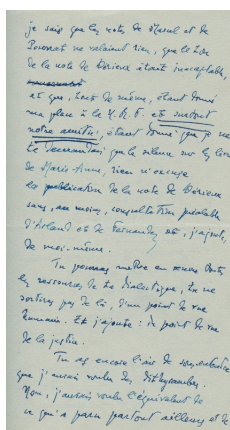 je sais que les notes de Marcel et de
Pourrat ne valaient rien, que le ton
de la note de Dérieux était inacceptable,
et que, tout de même, étant donné
ma place à la N.R.F. et surtout
notre amitié, étant donné que je ne
te demandais que le silence sur les livres
de Marie-Anne, rien n'excuse
la publication de la note de Dérieux
sans, au moins, consultation préalable
d'Arland et de Fernandez et, j'ajoute,
de moi-même.
Tu pourras mettre en œuvre toutes
les ressources de ta dialectique, tu ne
sortiras pas de là, d'un point de vue
humain. Et j'ajoute : du point de vue
de la justice.
Tu as encore l'air de sous-entendre
que j'aurais voulu des dithyrambes.
Non, j'aurais voulu l'équivalent de
ce qui a paru partout ailleurs et de